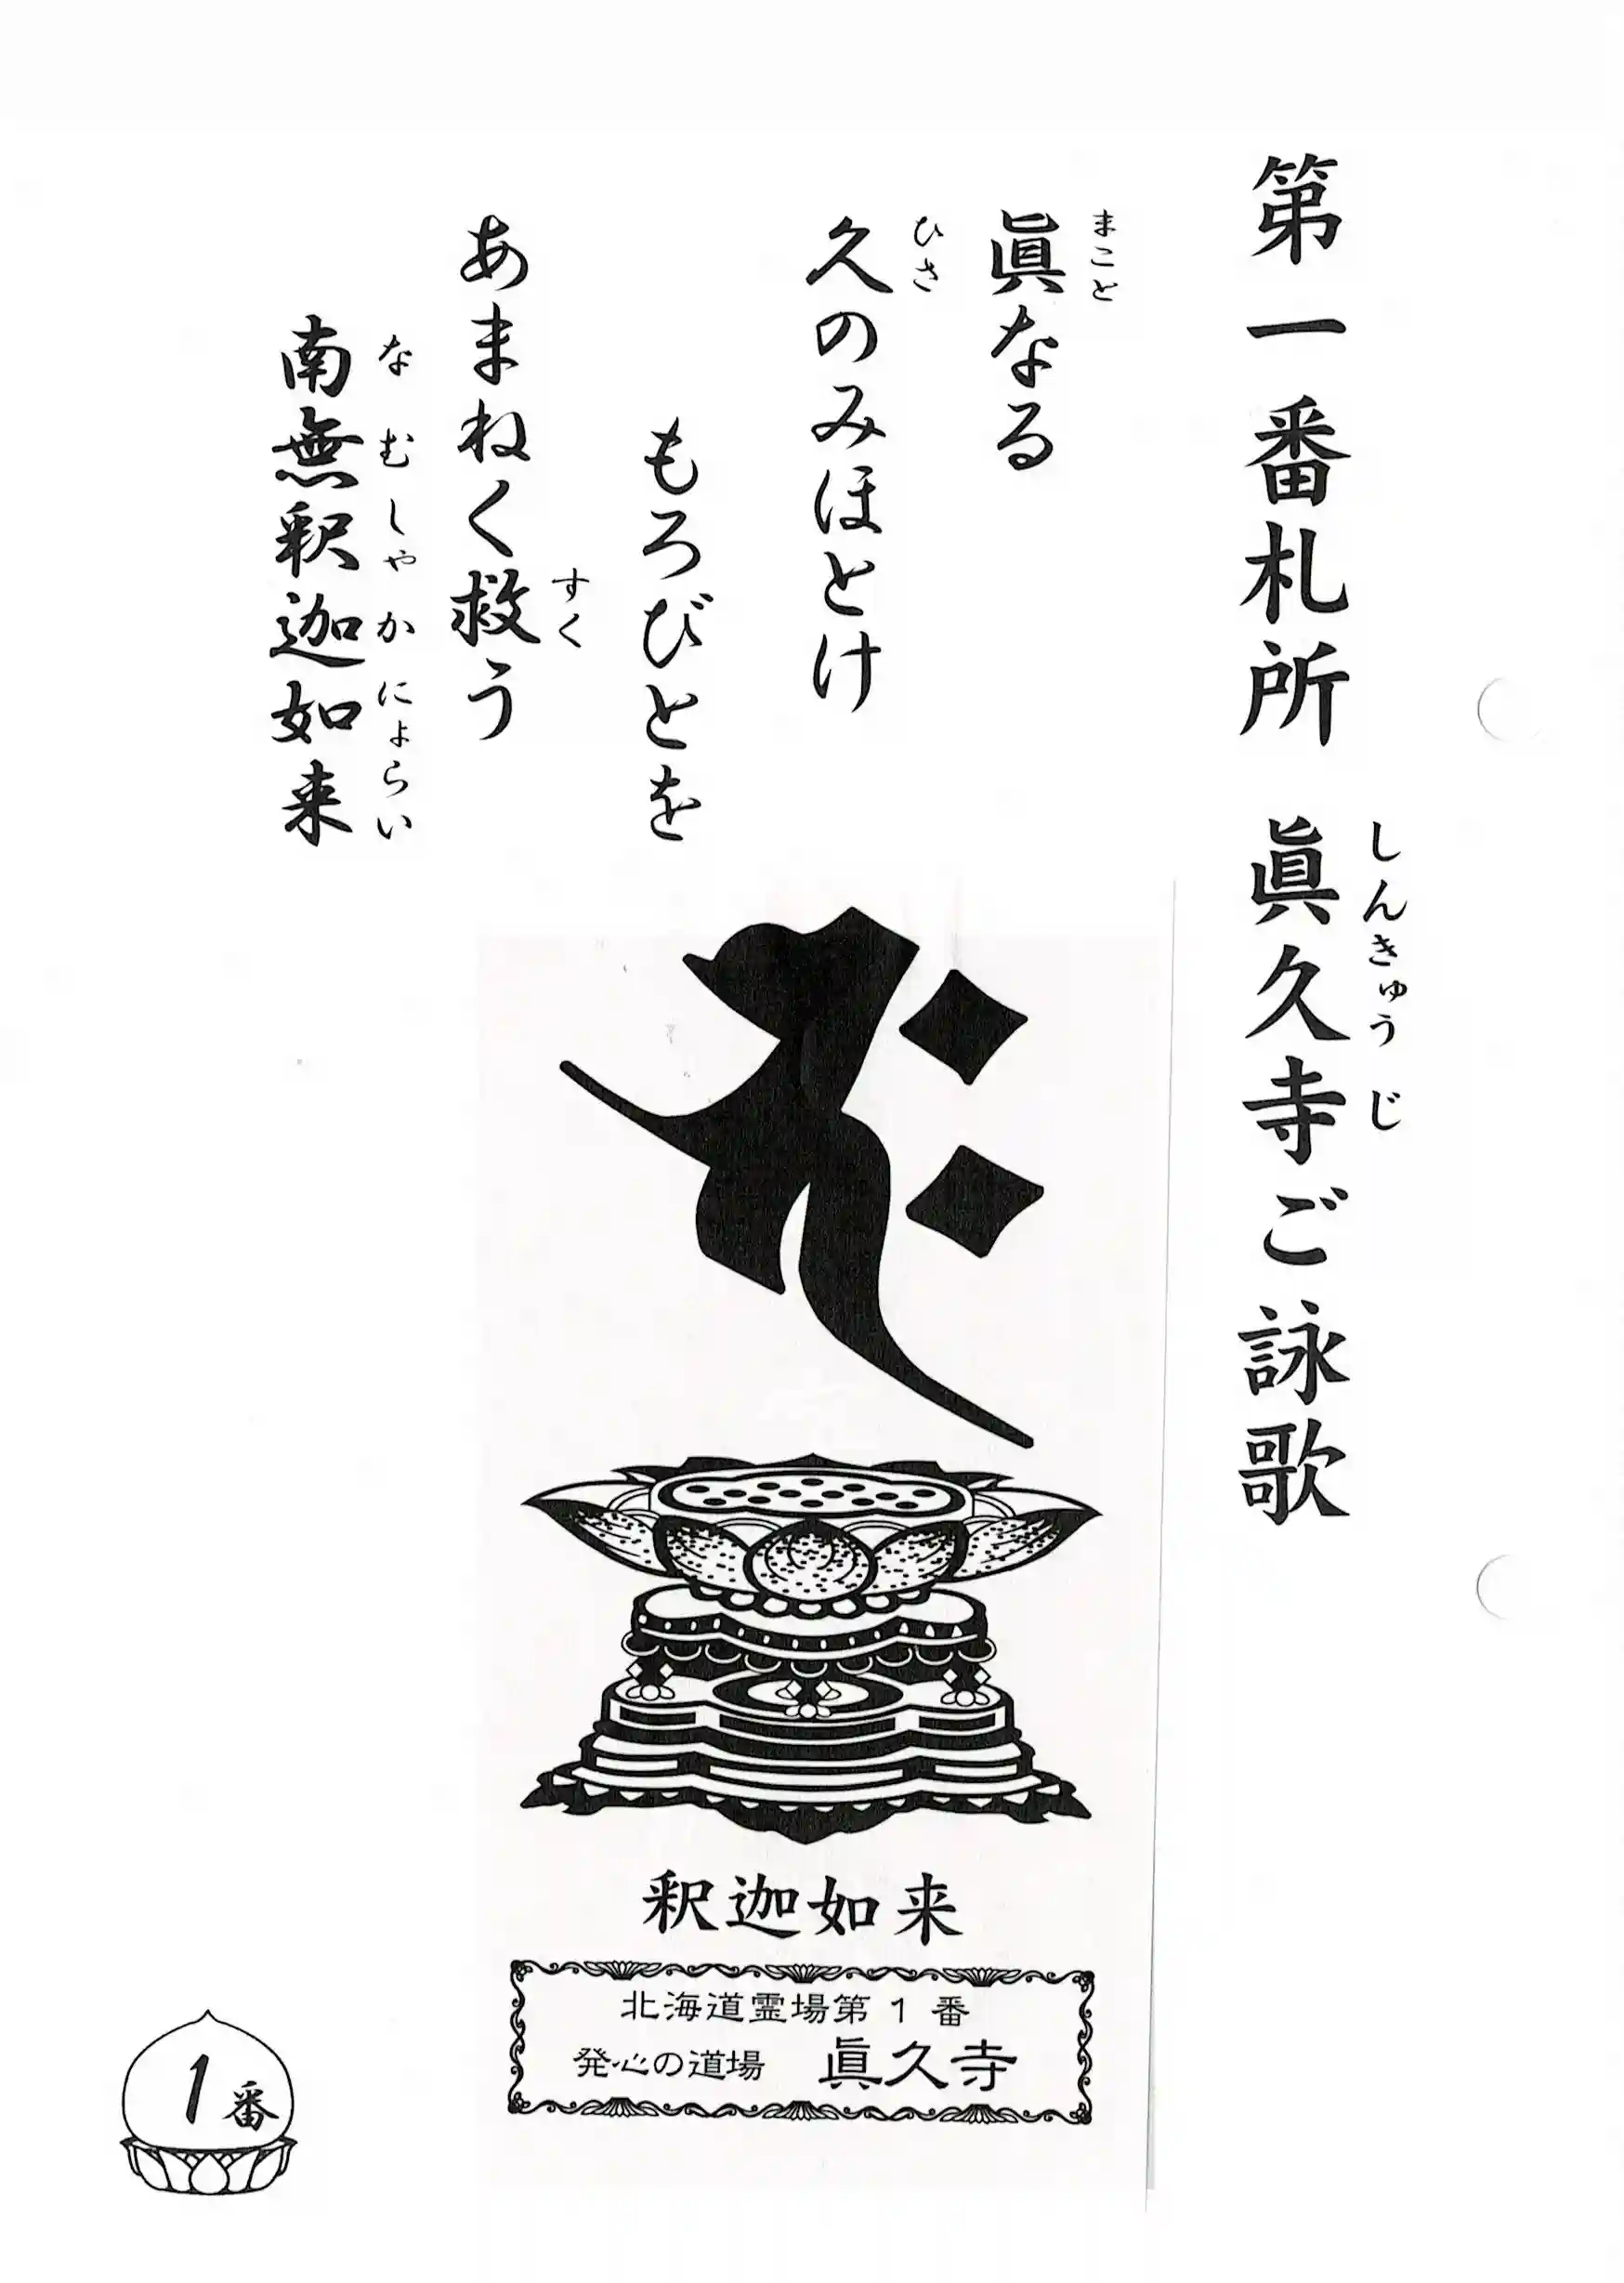 第一番札所 眞久寺ご詠歌
しんきゅうじ
眞なる
まこと
久のみほとけ
ひさ
もろびとを
あまねく救う
すく
南無釈迦如来
なむしゃかにょらい
釈迦如来
北海道霊場第1番
発心の道場 眞久寺
1番